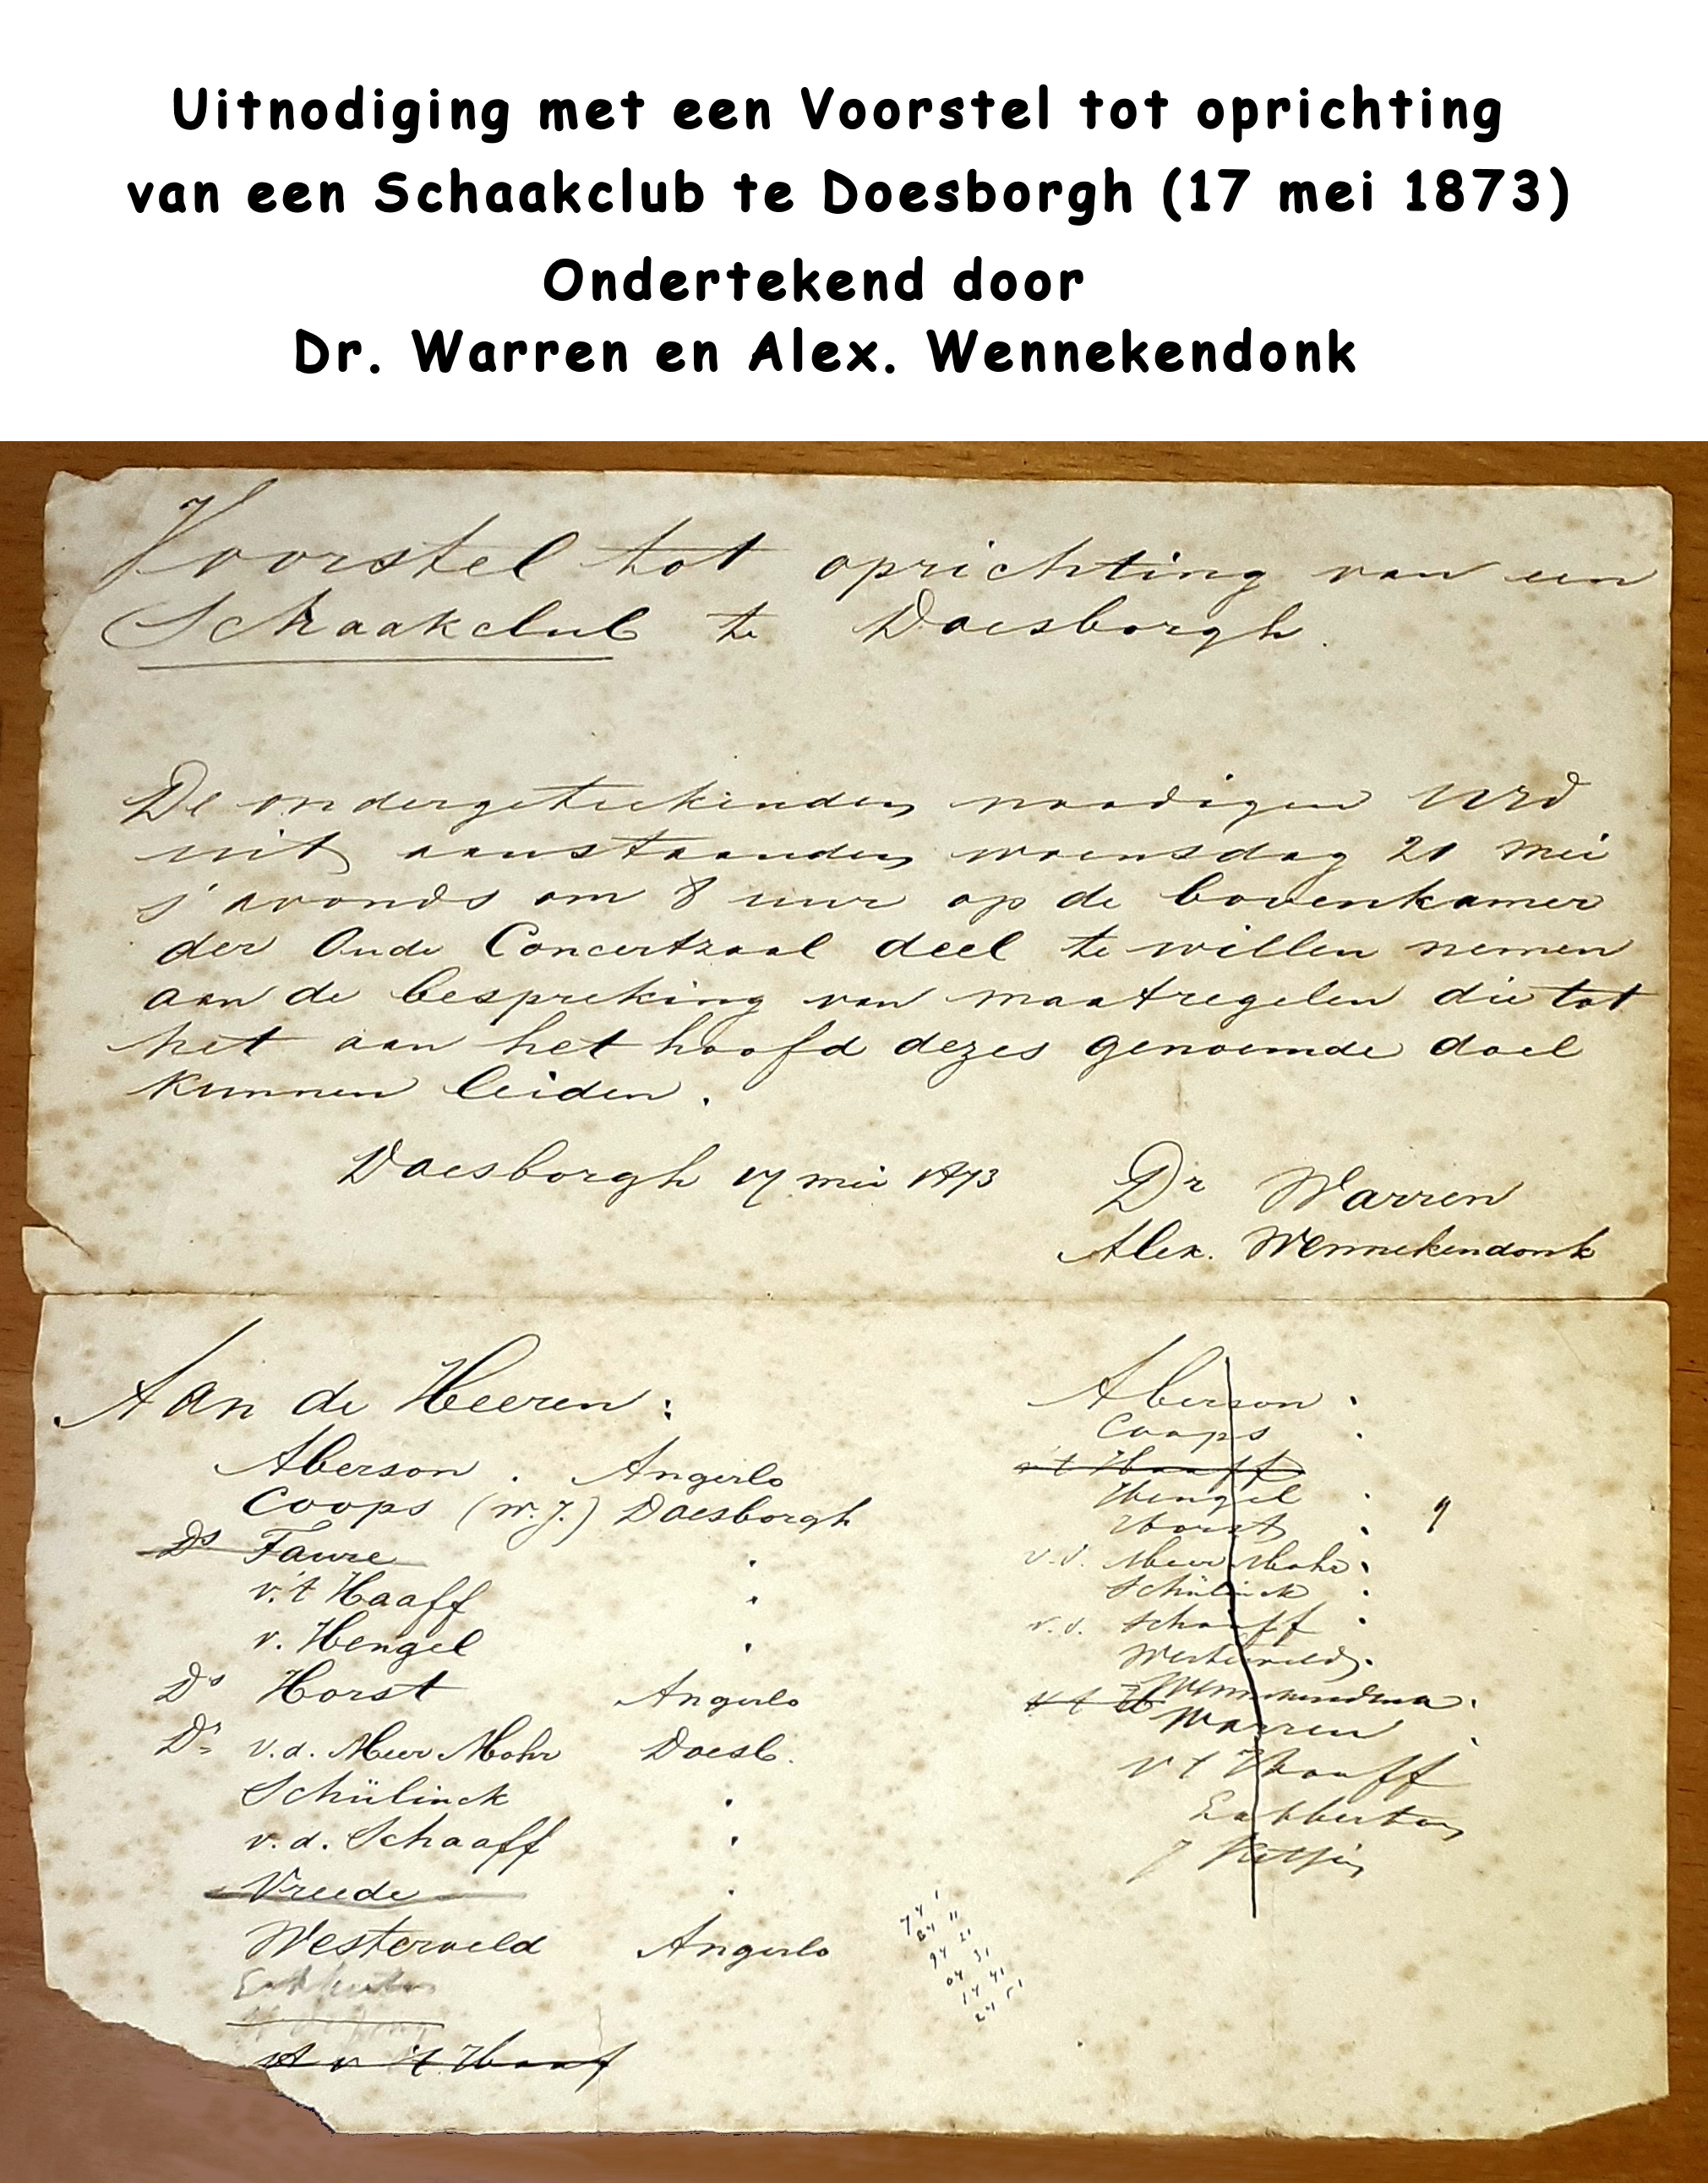 Uitnodiging met een Voorstel tot oprichting
van een Schaakclub te Doesborgh (17 mei 1873)
Ondertekend door
Dr. Warren en Alex. Wennekendonk
Voorstel tot oprichting van een
Schaakclub te Doesborgh.
De ondergeteekenden noodigen UEd
uit aanstaanden woensdag 21 mei
s'avonds om 8 uur op de bovenkamer
der Oude Concertzaal deel te willen nemen
aan de bespreking van maatregelen die tot
het aan het hoofd dezes genoemde doel
kunnen leiden.
Doesborgh 17 mei 1873
Dr Warren
Alex. Wennekendonk
Aan de Heeren:
Aberson . Angerlo
Coops (W.J.) Doesborgh
Ds Faure "
v.'t Haaff "
v. Hengel "
Ds Horst Angerlo
Dr v.d. Meer Mohr Doesb.
Schülinck "
v.d. Schaaff "
Vreede "
Westerveld Angerlo
A v 't Haaf
Aberson
Coops
v 't Haaff
Hengel
Horst
v.d. Meer Mohr
Schülinck
v.d. Schaaff
Westerveld
Wennekendonk
Warren
v t Haaff